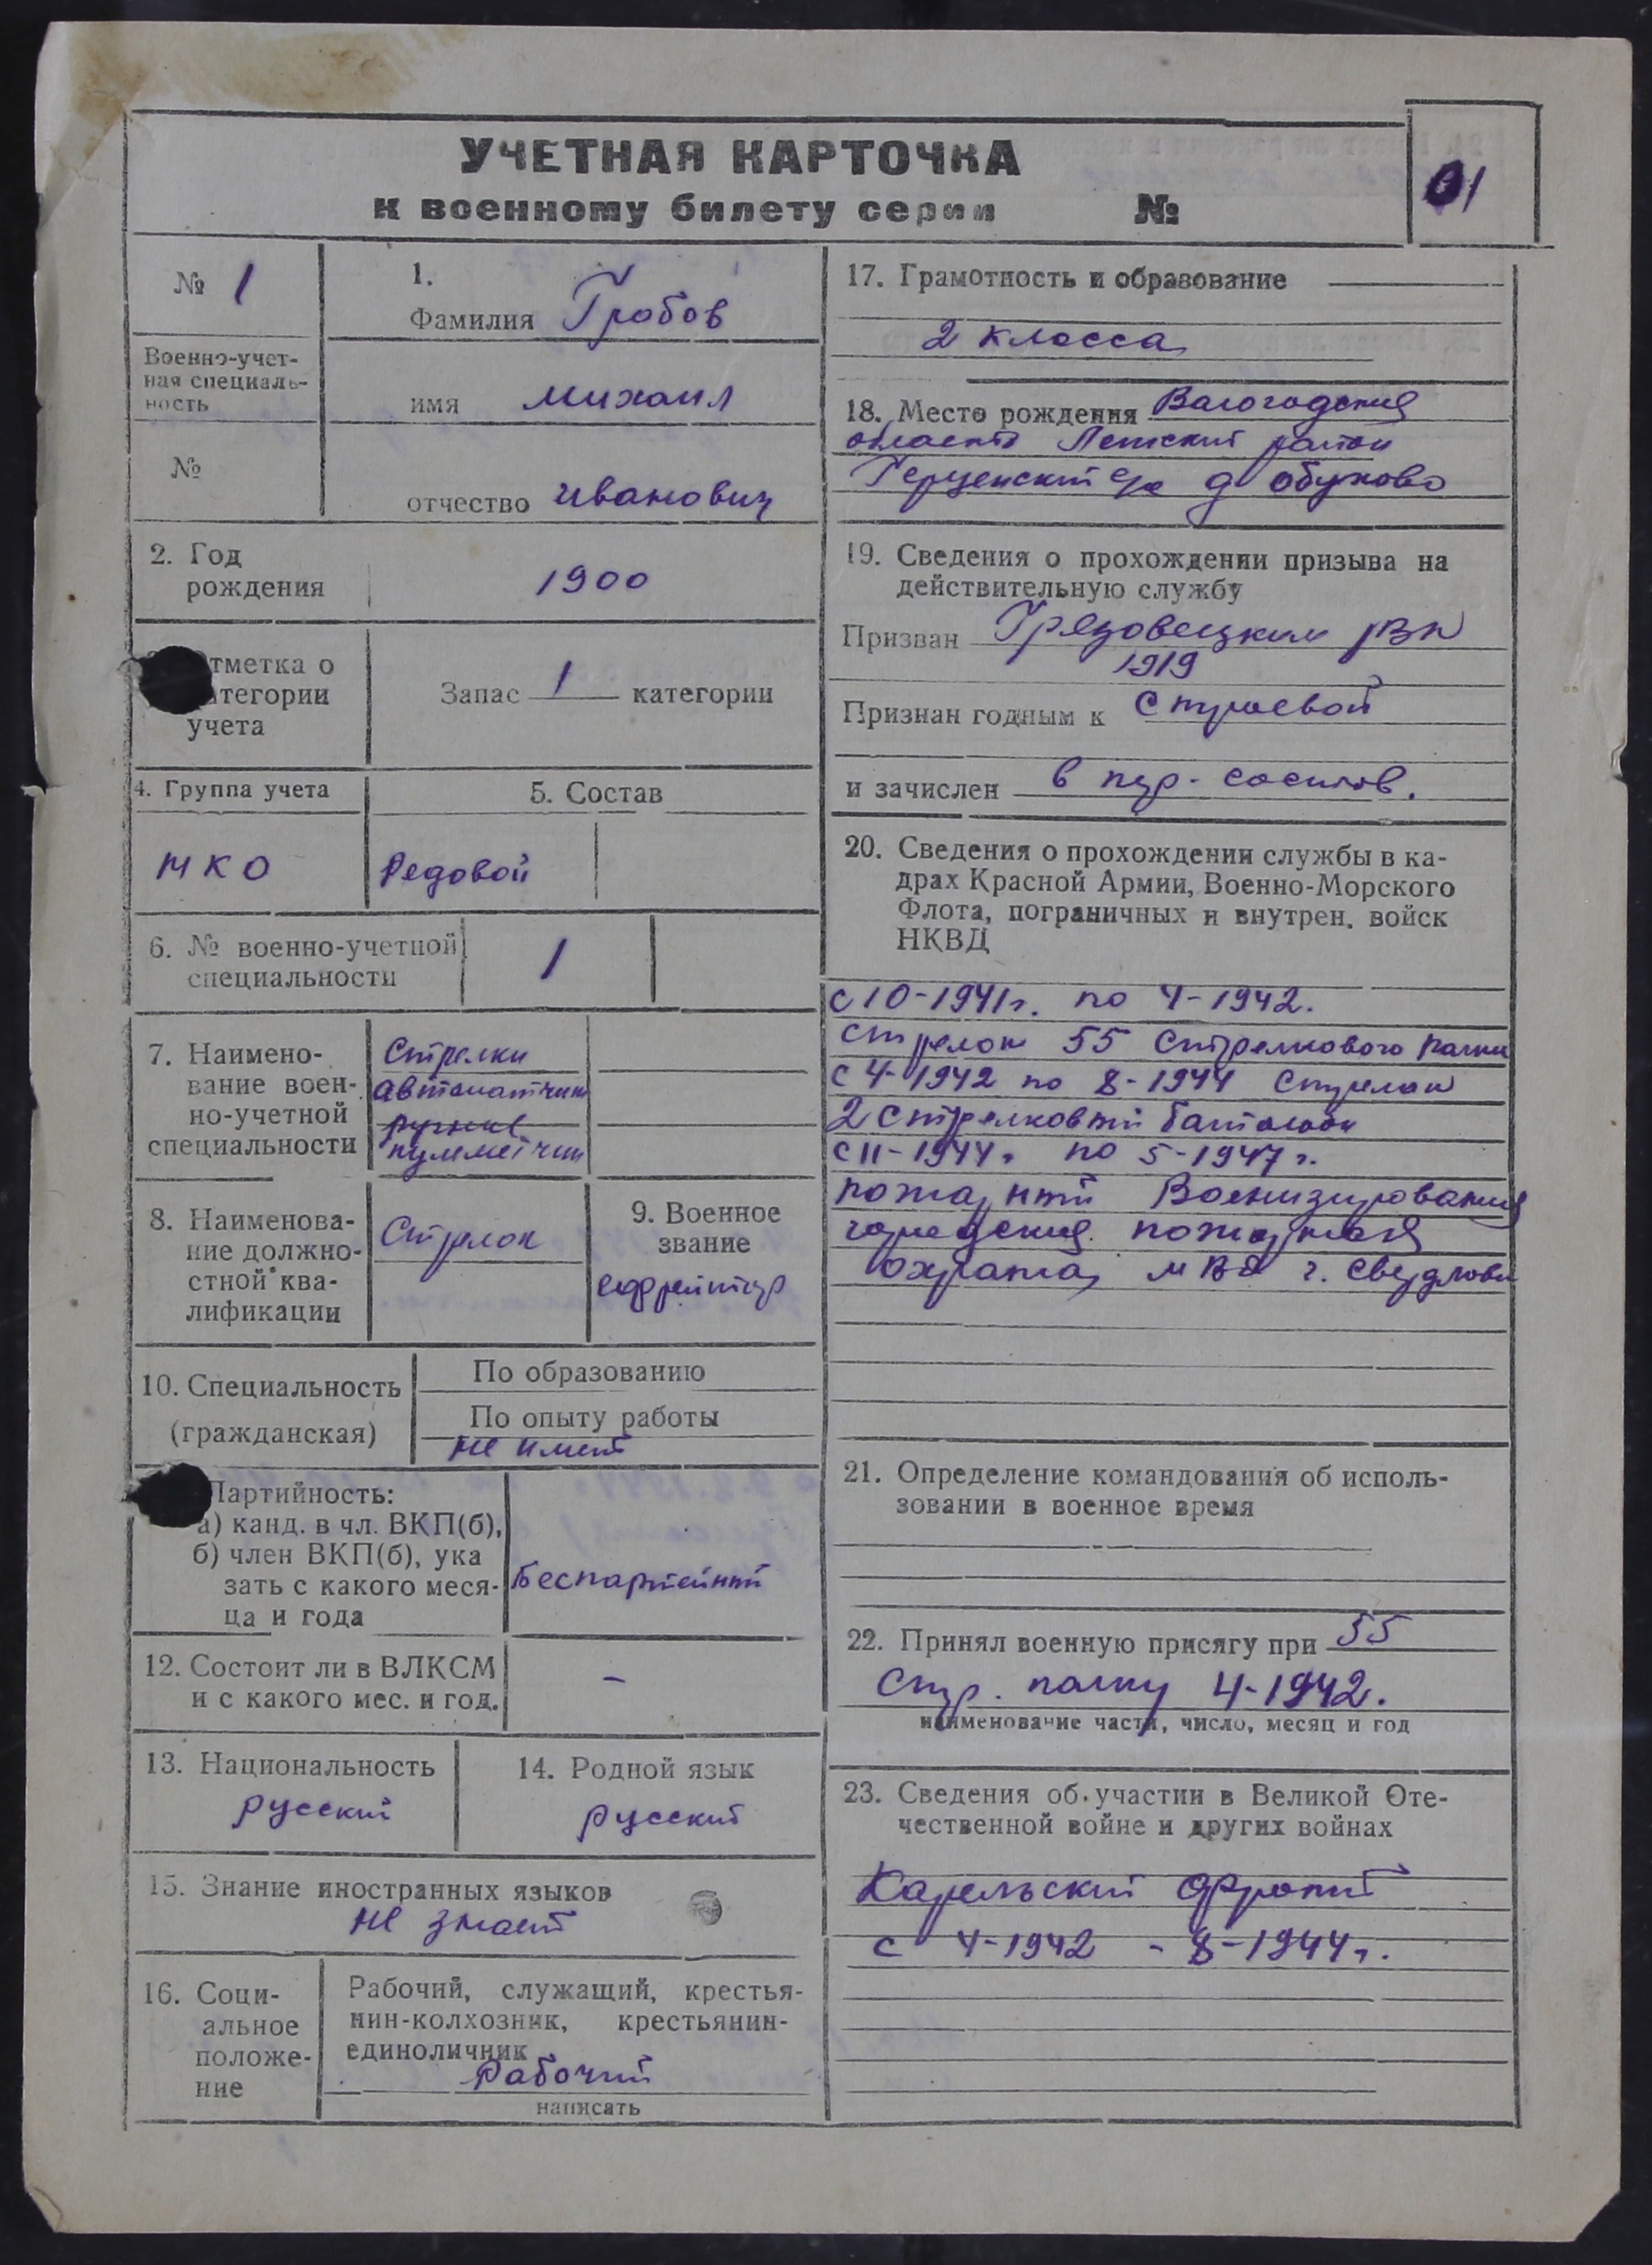 УЧЕТНАЯ КАРТОЧКА
к военному билету серии №
01
№ 1
Военно-учет-
ная специаль-
ность
№
1.
Фамилия Гробов
имя Михаил
отчество Иванович
2. Год
рождения
1900
тметка о
атегории
учета
Запас 1 категории
4. Группа учета
НКО
5. Состав
Редовой
6. № военно-учетной
специальности
1
7. Наимено-
вание воен-
но-учетной
специальности
Стрелки
автоматчик
ручные
пулеметчик
8. Наименова-
ние должно-
стной ква-
лификации
Стрелок
9. Военное
звание
ефрейтор
10. Специальность
(гражданская)
По образованию
По опыту работы
не имеет
Партийность:
а) канд. в чл. ВКП(б),
б) член ВКП(б), ука
зать с какого меся-
ца и года
Беспартейный
12. Состоит ли в ВЛКСМ
и с какого мес. и год.
-
13. Национальность
русский
14. Родной язык
русский
15. Знание иностранных языков
не знает
16. Соци-
альное
положе-
ние
Рабочий, служащий, крестья-
нин-колхозник, крестьянин-
единоличник
Рабочий
написать
17. Грамотность и образование
2 класса
18. Место рождения Вологодския
область район
Герценский с/с д Обухово
19. Сведения о прохождении призыва на
действительную службу
Призван Грязовецким рвк
1919
Признан годным к строевой
и зачислен в пер. состав.
20. Сведения о прохождении службы в ка-
драх Красной Армии, Военно-Морского
Флота, пограничных и внутрен. войск
НКВД
с 10-1941г. по 4-1942.
стрелок 55 стрелкового полка
с 4-1942 по 8-1944 стрелок
2 стрелковый батальон
с 11-1944г. по 5-1947г.
пожарный Военизированния
городския пожарная
охрана МВД г. Свердлова
21. Определение командования об исполь-
зовании в военное время
22. Принял военную присягу при 55
стр. полку 4-1942.
наименование части, число, месяц и год
23. Сведения об участии в Великой Оте-
чественной войне и других войнах
Карельский фронт
с 4-1942 - 8-1944г.